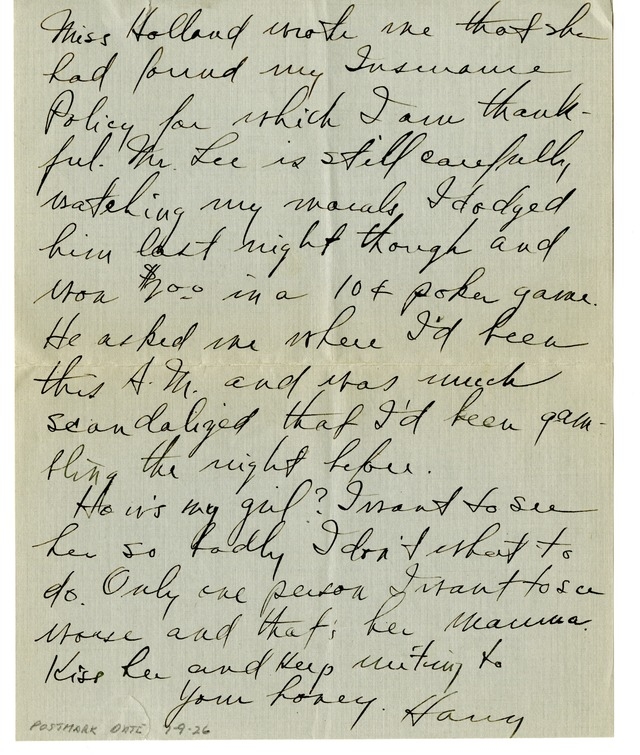 Miss Holland wrote me that she
had found my Insurance
Policy for which I am thank-
ful. Mr. Lee is still carefully
watching my morals I dodged
him last night though and
won $7.00 in a 10¢ poker game.
He asked me where I'd been
this A.M. and was much
scandalized that I'd been gam-
bling the night before.
How's my girl? I want to see
her so badly I don't what to
do. Only one person I want to see
worse and that's her mamma.
Kiss her and keep writing to
Your honey. Harry
POSTMARK DATE 7-9-26